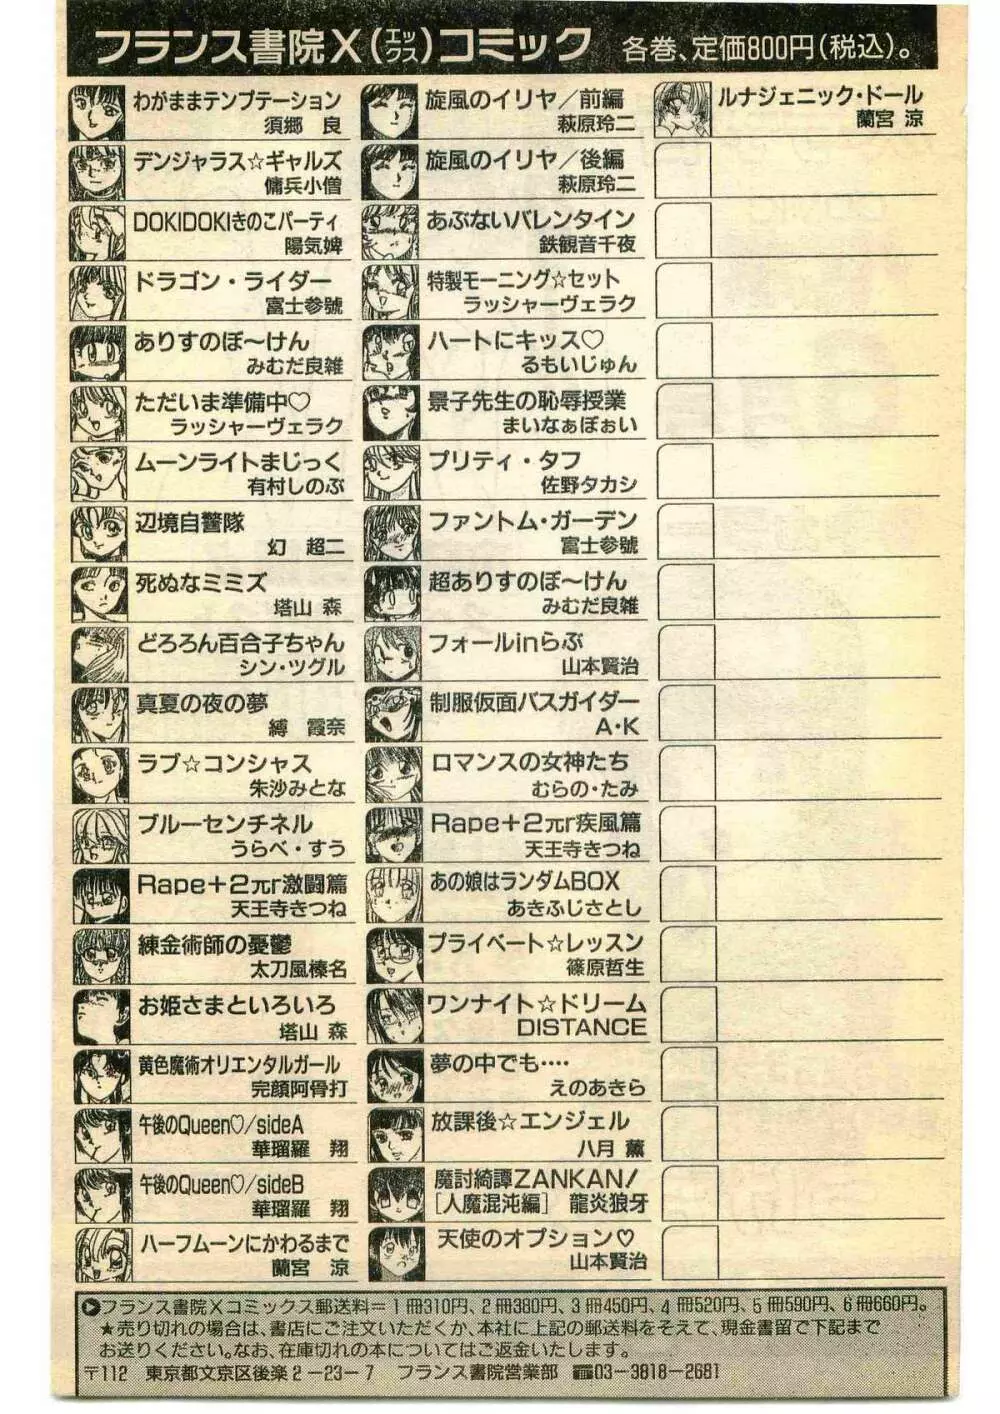 フランス書院X(エックス)コミック 各巻、定価800円(税込)。
わがままテンプテーション
須郷 良
デンジャラス☆ギャルズ
傭兵小僧
DOKIDOKIきのこパーティ
陽気婢
ドラゴン・ライダー
富士参號
ありすのぼ〜けん
みむだ良雑
ただいま準備中♡
ラッシャーヴェラク
ムーンライトまじっく
有村しのぶ
辺境自警隊
幻 超二
死ぬなミミズ
塔山 森
どろろん百合子ちゃん
シン・ツグル
真夏の夜の夢
縛 霞奈
ラブ☆コンシャス
朱沙みとな
ブルーセンチネル
うらべ・すう
Rape+2πr激闘篇
天王寺きつね
練金術師の憂鬱
太刀風榛名
お姫さまといろいろ
塔山 森
黄色魔術オリエンタルガール
完顔阿骨打
午後のQueen♡/sideA
華瑠羅 翔
午後のQueen♡/sideB
華瑠羅 翔
ハーフムーンにかわるまで
蘭宮 涼
旋風のイリヤ/前編
萩原玲二
旋風のイリヤ/後編
萩原玲二
あぶないバレンタイン
鉄観音千夜
特製モーニング☆セット
ラッシャーヴェラク
ハートにキッス♡
るもいじゅん
景子先生の恥辱授業
まいなぁぼぉい
プリティ・タフ
佐野タカシ
ファントム・ガーデン
富士参號
超ありすのぼ〜けん
みむだ良雑
フォールinらぶ
山本賢治
制服仮面バスガイダー
A・K
ロマンスの女神たち
むらの・たみ
Rape+2πr疾風篇
天王寺きつね
あの娘はランダムBOX
あきふじさとし
プライベート☆レッスン
篠原哲生
ワンナイト☆ドリーム
DISTANCE
夢の中でも‥‥
えのあきら
放課後☆エンジェル
八月 薫
魔討綺譚ZANKAN!
[人魔混沌編] 龍炎狼牙
天使のオプション♡
山本賢治
ルナジェニック・ドール
蘭宮 涼
フランス書院Xコミックス郵送料=1冊310円、2冊380円、3冊450円、4冊520円、5冊590円、6冊660円。
★売り切れの場合は、書店にご注文いただくか、本社に上記の郵送料をそえて、現金書留で下記まで
お送りください。なお、在庫切れの本についてはご返金いたします。
〒112 東京都文京区後楽2-23-7 フランス書院営業部 ☎03-3818-2681